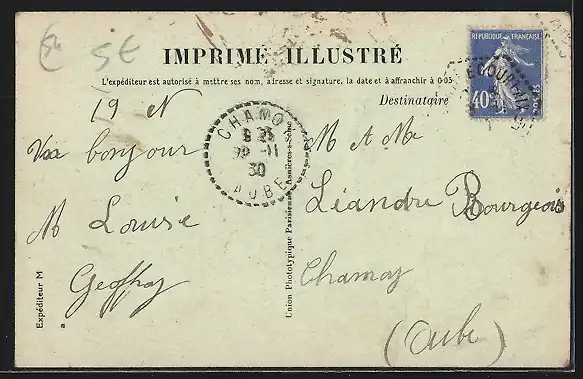 5 €
IMPRIMÉ ILLUSTRÉ
L'expéditeur est autorisé à mettre ses nom, adresse et signature, la date et à affranchir à 0.05
Destinataire
RÉPUBLIQUE FRANÇAISE
40c
POSTES
CHAMOY
9 35
-11
30
AUBE
19 N
bonjour
M Louise
Geoffroy
M & Mme
Léandre Bourgeois
Chamoy
(Aube)
Union Phototypique Parisienne, Asnières-s-Seine
Expéditeur M
a